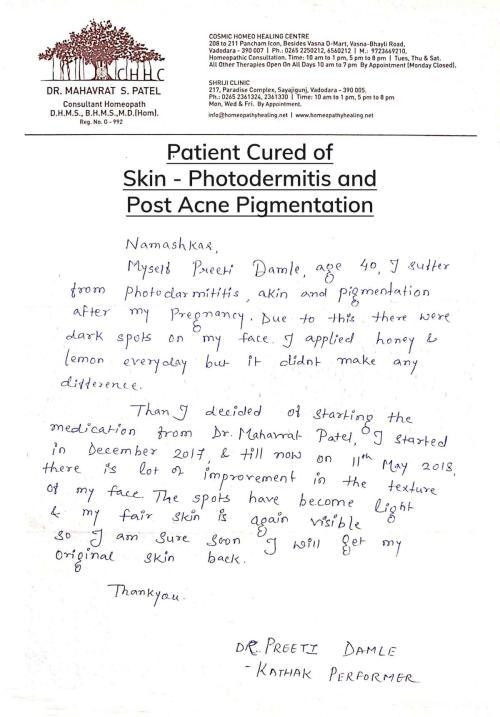 CHHC
DR. MAHAVRAT S. PATEL
Consultant Homeopath
D.H.M.S., B.H.M.S.,M.D.(Hom).
Reg. No. G - 992
COSMIC HOMEO HEALING CENTRE
208 to 211 Pancham Icon, Besides Vasna D-Mart, Vasna-Bhayli Road,
Vadodara - 390 007 | Ph.: 0265 2250212, 6560212 | M.: 9723669210,
Homeopathic Consultation. Time: 10 am to 1 pm, 5 pm to 8 pm | Tues, Thu & Sat.
All Other Therapies Open On All Days 10 am to 7 pm By Appointment (Monday Closed).
SHRIJI CLINIC
217, Paradise Complex, Sayajigunj, Vadodara - 390 005,
Ph.: 0265 2361324, 2361330 | Time: 10 am to 1 pm, 5 pm to 8 pm
Mon, Wed & Fri. By Appointment.
info@homeopathyhealing.net | www.homeopathyhealing.net
Patient Cured of
Skin - Photodermitis and
Post Acne Pigmentation
Namashkar,
Myself Preeti Damle, age 40, I suffer
from photodarmititis, akin and pigmentation
after my Pregnancy. Due to this there were
dark spots on my face. I applied honey &
lemon everyday but it didnt make any
difference.
Than I decided of starting the
medication from Dr. Mahavrat Patel, I started
in December 2017, & till now on 11th May 2018,
there is lot of improvement in the texture
of my face. The spots have become light
& my fair skin is again visible
so I am sure soon I will get my
original skin back.
Thankyou.
DR. PREETI DAMLE
- KATHAK PERFORMER